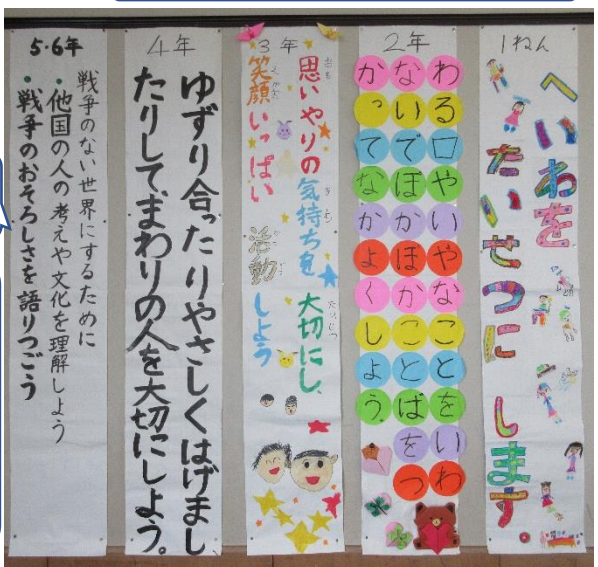 1ねん
へいわを
たいせつに します。
2年
わる口やいやなことをいわ
ないでほかほかことばをつ
かってなかよくしよう
3年
思いやりの気持ちを 大切にし、
笑顔いっぱい 活動しよう
4年
ゆずり合ったりやさしくはげまし
たりして、まわりの人を大切にしよう。
5・6年
戦争のない世界にするために
・他国の人の考えや文化を理解しよう
・戦争のおそろしさを語りつごう